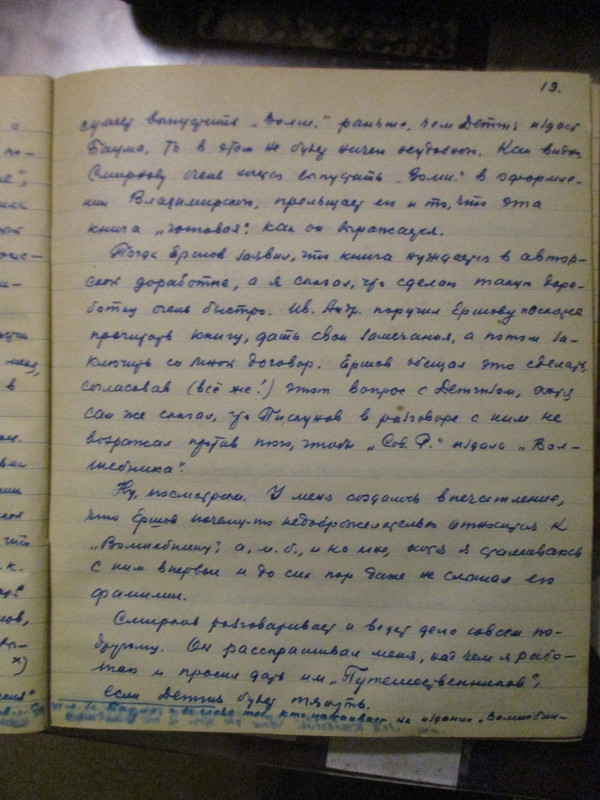 19.
сумеет выпустить „Волш." раньше, чем Детгиз издаст
Баума. То в этом не будет ничего неудобного. Как видно,
Смирнову очень хочется выпустить „Волш." в оформле-
нии Владимирского, прельщает его и то, что эта
книга „готовая", как он выражается.
Тогда Ершов заявил, что книга нуждается в автор-
ской доработке, а я сказал, что сделаю такую дора-
ботку очень быстро. Ив. Андр. поручил Ершову поскорее
прочитать книгу, дать свои замечания, а потом за-
ключить со мной договор. Ершов обещал это сделать,
согласовав (всё же!) этот вопрос с Детгизом, хотя
сам же сказал, что Пискунов в разговоре с ним не
возражал против того, чтобы „Сов. Р." издала „Вол-
шебника".
Ну, посмотрим. У меня создалось впечатление,
что Ершов почему-то недоброжелательно относится к
„Волшебнику", а, м. б., и ко мне, хотя я сталкиваюсь
с ним впервые и до сих пор даже не слыхал его
фамилии.
Смирнов разговаривает и ведет дело совсем по-
другому. Он расспрашивал меня, над чем я рабо-
таю и просил дать им „Путешественников",
если Детгиз будет тянуть.
кто настаивает на издании „Волшебни-